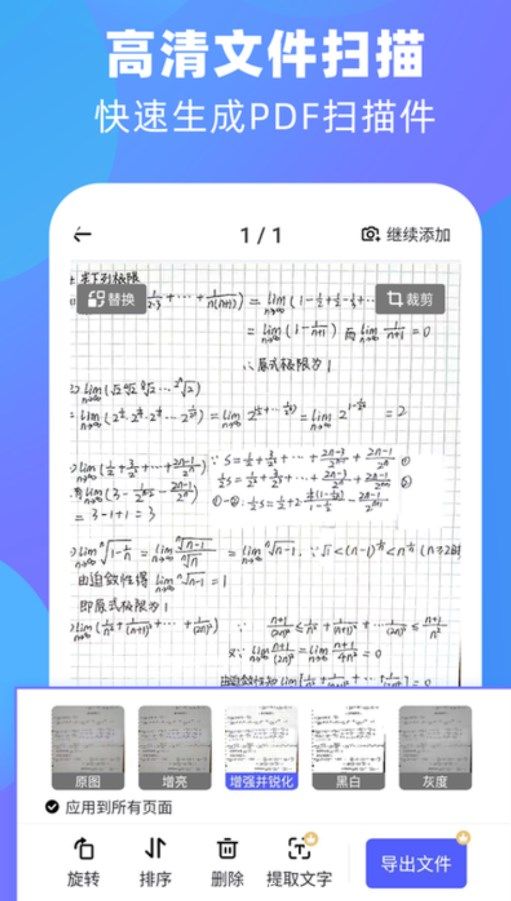 高清文件扫描
快速生成PDF扫描件
1 / 1
继续添加
求下列极限
替换
裁剪
1/2·3 + ··· + 1/(n(n+1)) = lim n→∞ (1 - 1/2 + 1/2 - 1/3 + ···
= lim n→∞ (1 - 1/(n+1)) 而 lim n→∞ 1/(n+1) = 0
∴ 原式极限为1
lim n→∞ (√2 ∜2 ⁸√2 ··· ²ⁿ√2)
= lim n→∞ (2^(1/2) · 2^(1/4) · 2^(1/8) ··· 2^(1/2ⁿ)) = lim n→∞ 2^(1/2+···+1/2ⁿ) = lim n→∞ 2^(1-1/2ⁿ) = 2
lim n→∞ (1/2 + 3/2² + ··· + (2n-1)/2ⁿ) ∵ S = 1/2 + 3/2² + ··· + (2n-3)/2ⁿ⁻¹ + (2n-1)/2ⁿ ①
1/2 S = 1/2² + 3/2³ + ··· + (2n-3)/2ⁿ + (2n-1)/2ⁿ⁺¹ ②
lim n→∞ (3 - 1/2ⁿ⁻² - (2n-1)/2ⁿ)
= 3-1+1 = 3
lim n→∞ ⁿ√(1-1/n) = lim n→∞ ⁿ√(n-1)/ⁿ√n = lim n→∞ ⁿ√(n-1), ∵ √1 < (n-1)^(1/n) < n^(1/n)
由迫敛性得 lim n→∞ ⁿ√(n-1) = 1
即原式极限为1
lim n→∞ (1/n² + 1/(n+1)² + ··· + 1/(2n)²) ∵ (n+1)/(2n)² ≤ 1/n² + 1/(n+1)² + ··· 1/(2n)² ≤ (n+1)/n²
又∵ lim n→∞ (n+1)/(2n)² = lim n→∞ (n+1)/4n² = 0
原图
增亮
增强并锐化
黑白
灰度
应用到所有页面
旋转
排序
删除
提取文字
导出文件